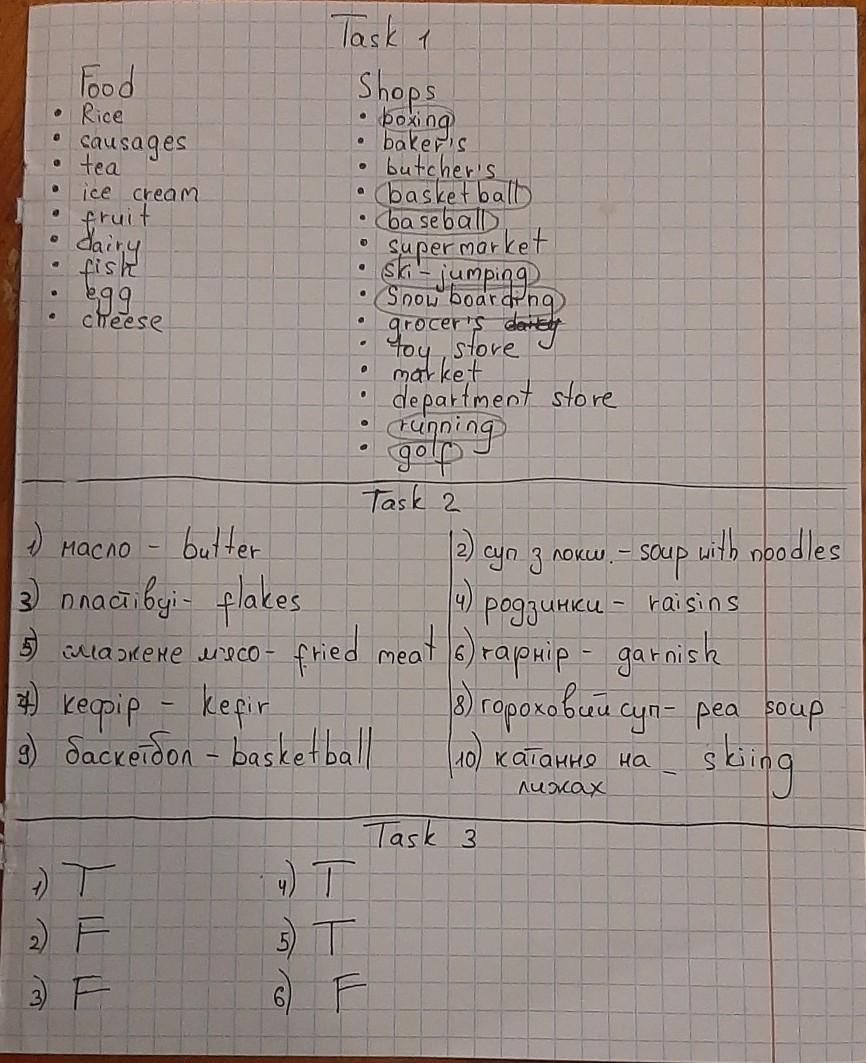 Task 1
Food
• Rice
• sausages
• tea
• ice cream
• fruit
• dairy
• fish
• egg
• cheese
Shops
• boxing
• baker's
• butcher's
• basketball
• baseball
• supermarket
• ski-jumping
• Snowboarding
• grocer's dairy
• toy store
• market
• department store
• running
• golf
Task 2
1) масло - butter
2) суп з локш. - soup with noodles
3) пластівці - flakes
4) родзинки - raisins
5) смажене м'ясо - fried meat
6) гарнір - garnish
7) кефір - kefir
8) гороховий суп - pea soup
9) баскетбол - basketball
10) катання на - skiing
лижах
Task 3
1) T
2) F
3) F
4) T
5) T
6) F